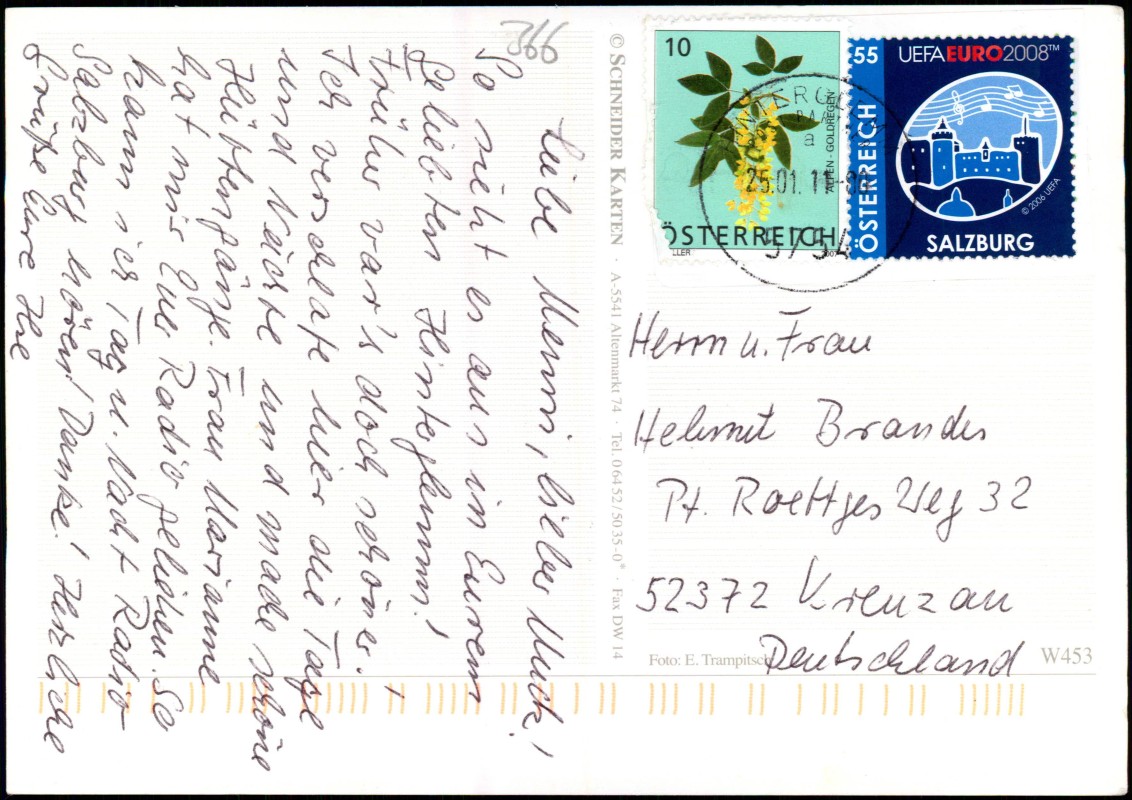 366
Liebe Menni, lieber Muck!
So sieht es aus in Eurem
geliebten Hinterglemm!
Früher war's doch schöner!
Ich verschlafe hier die Tage
und Nächte und mache schöne
Hüttengänge. Frau Marianne
hat mir Euer Radio geliehen. So
kann ich Tag u. Nacht Radio
Salzburg hören! Danke! Herzliche
Grüße Eure Ilse
© SCHNEIDER KARTEN · A-5541 Altenmarkt 74 · Tel. 0 64 52 / 50 35-0* · Fax DW 14
10
ALPEN-GOLDREGEN
ÖSTERREICH
55
UEFA EURO2008™
ÖSTERREICH
© 2006 UEFA
SALZBURG
a
25.01.11
5754
Herrn u. Frau
Helmut Brandes
Pt. Roettges Weg 32
52372 Kreuzau
Deutschland
Foto: E. Trampitsch
W453